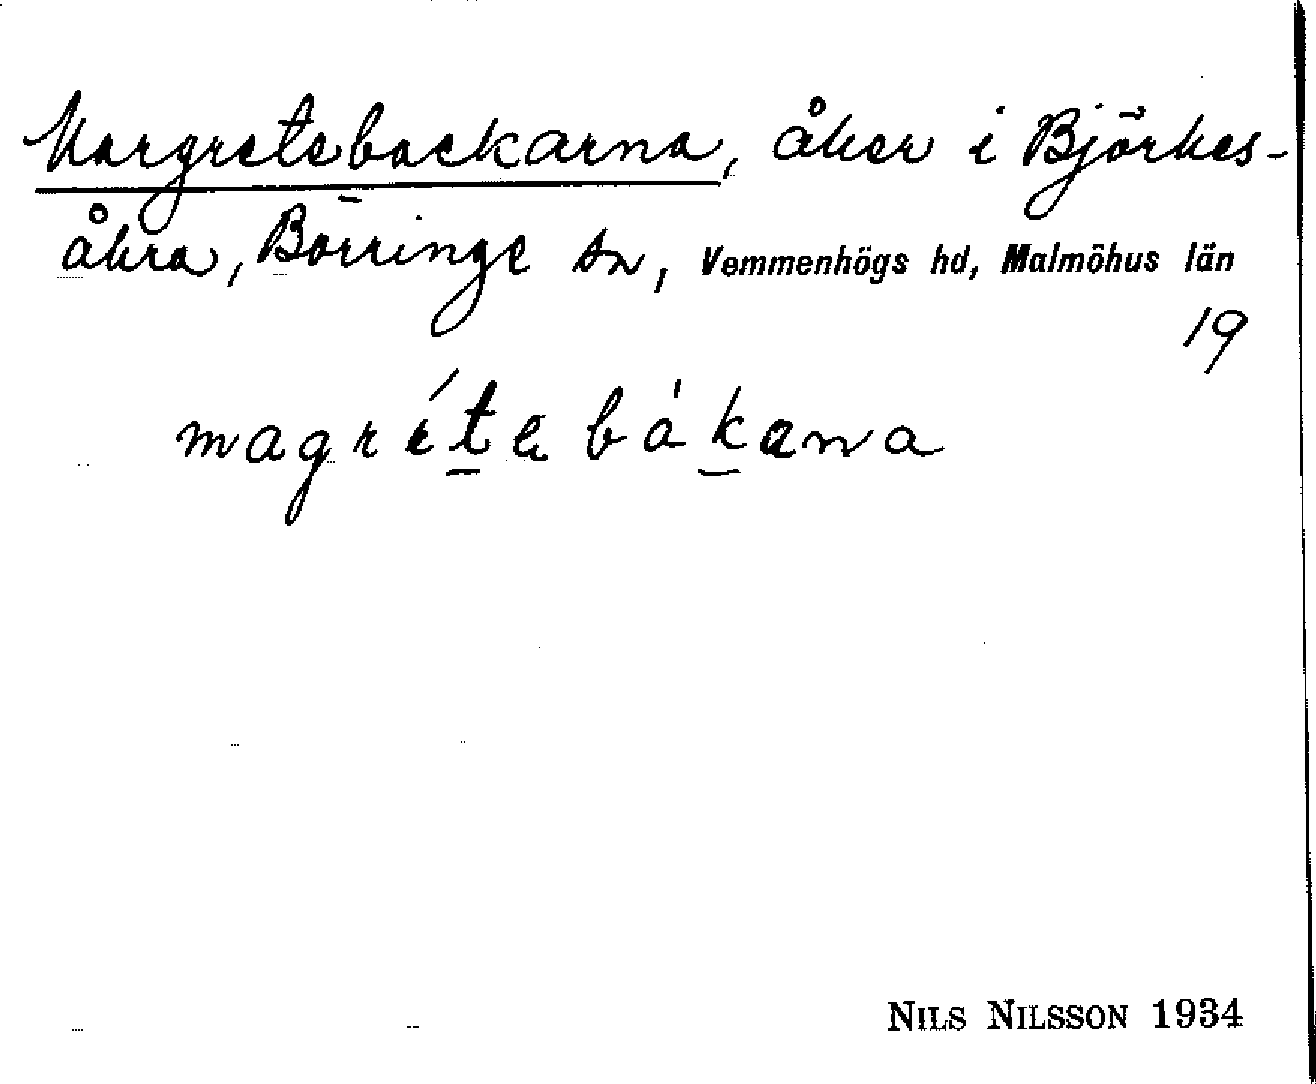 Margretebackarna, åker i Björkes-
åkra, Börringe sn, Vemmenhögs hd, Malmöhus län
19
magréte bákana
NILS NILSSON 1934